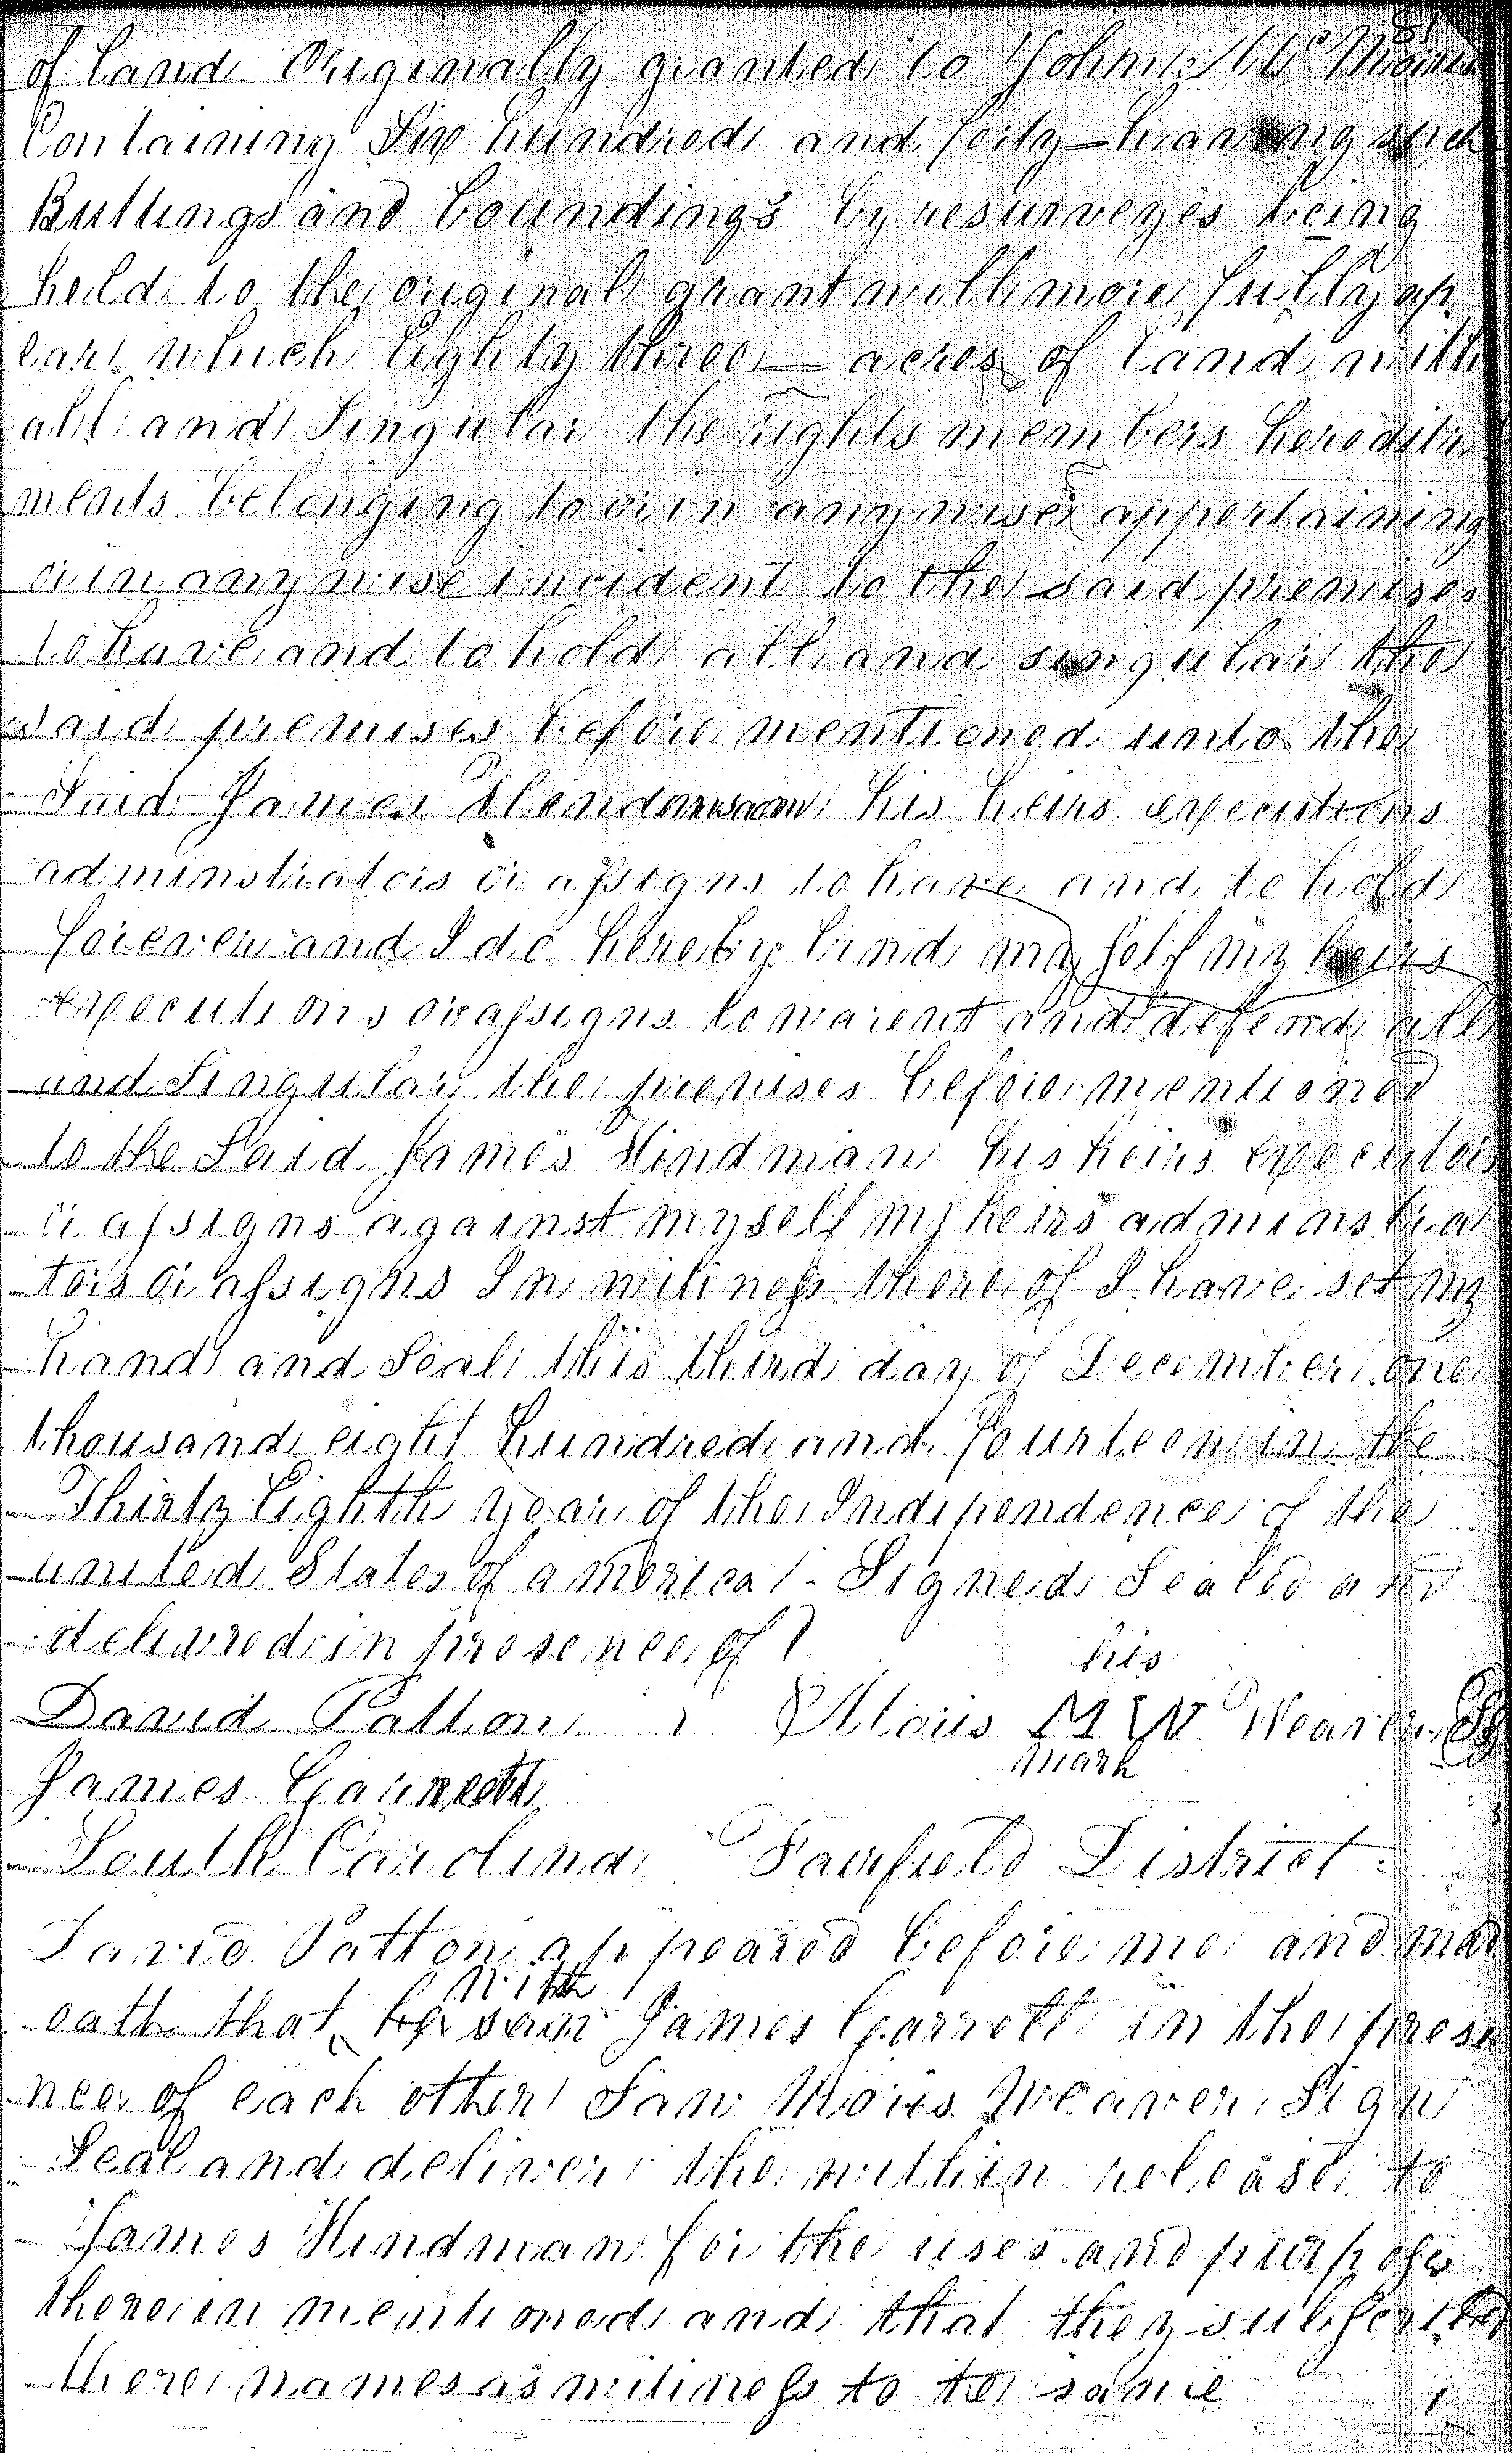 81
of land Originally granted to John Mc Morris
Containing Six hundred and forty — having such
Buttings and boundings by resurveyes being
held to the original grant will more fully ap
ear which Eighty three — acres of land with
all and Singular the rights members heredita
ments belonging to or in anywise appertaining
or in anywise incident to the said premises
to have and to hold all and singular the
said premises before mentioned unto the
Said James his heirs executions
adminstrators or assigns to have and to hold
forever and I do hereby bind my Self my heirs
executions or assigns to warent and defend all
and Singular the premises before mentioned
to the Said James Hindman his heirs executors
or assigns against myself my heirs adminstra
tors or assigns In witiness there of I have set my
hand and Seal this third day of December one
thousand eight hundred and fourteen in the
Thirty Eighth year of the Independence of the
united States of america - Signed Sealed and
delivred in presence of
his
David Patton Moris M W Weaver
mark
James Garrett
South Carolina Fairfield District
David Patton appeared before me and mad
with
oath that he James Garrett in the prese
nce of each other Saw Moris Weaver Sign
Seal and deliver the within release to
James Hindman for the uses and purposes
therein mentioned and that they subscribed
there names as witiness to the same